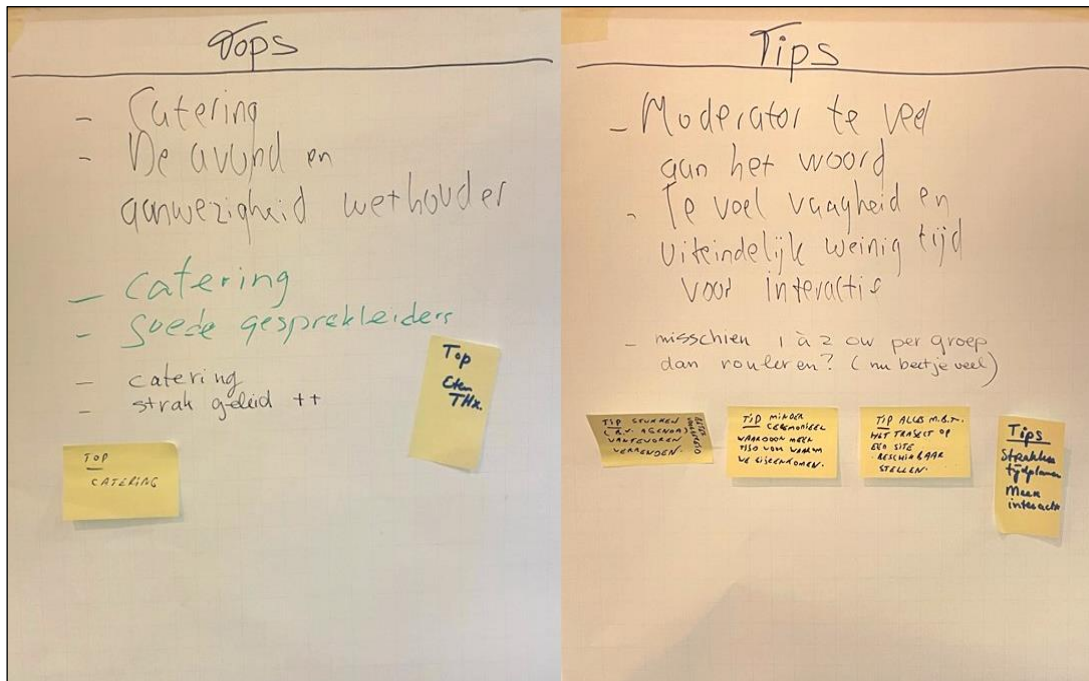 Tops
- Catering
- De avond en
aanwezigheid wethouder
- catering
- goede gesprekleiders
- catering
- strak geleid ++
Top
Eten
THx.
TOP
CATERING
Tips
- Moderator te veel
aan het woord
- Te veel vaagheid en
uiteindelijk weinig tijd
voor interactie
- misschien 1 à 2 ow per groep
dan rouleren? (nu beetje veel)
TIP STUKKEN
(B.V. AGENDA)
VANTEVOREN
VERZENDEN.
TIP MINDER
CEREMONIEEL
WAARDOOR MEER
TIJD VOOR WAAROM
WE BIJEENKOMEN.
TIP ALLES M.B.T.
HET TRAJECT OP
EEN SITE
BESCHIKBAAR
STELLEN.
Tips
Strakker
tijdplannen
Meer
interactie